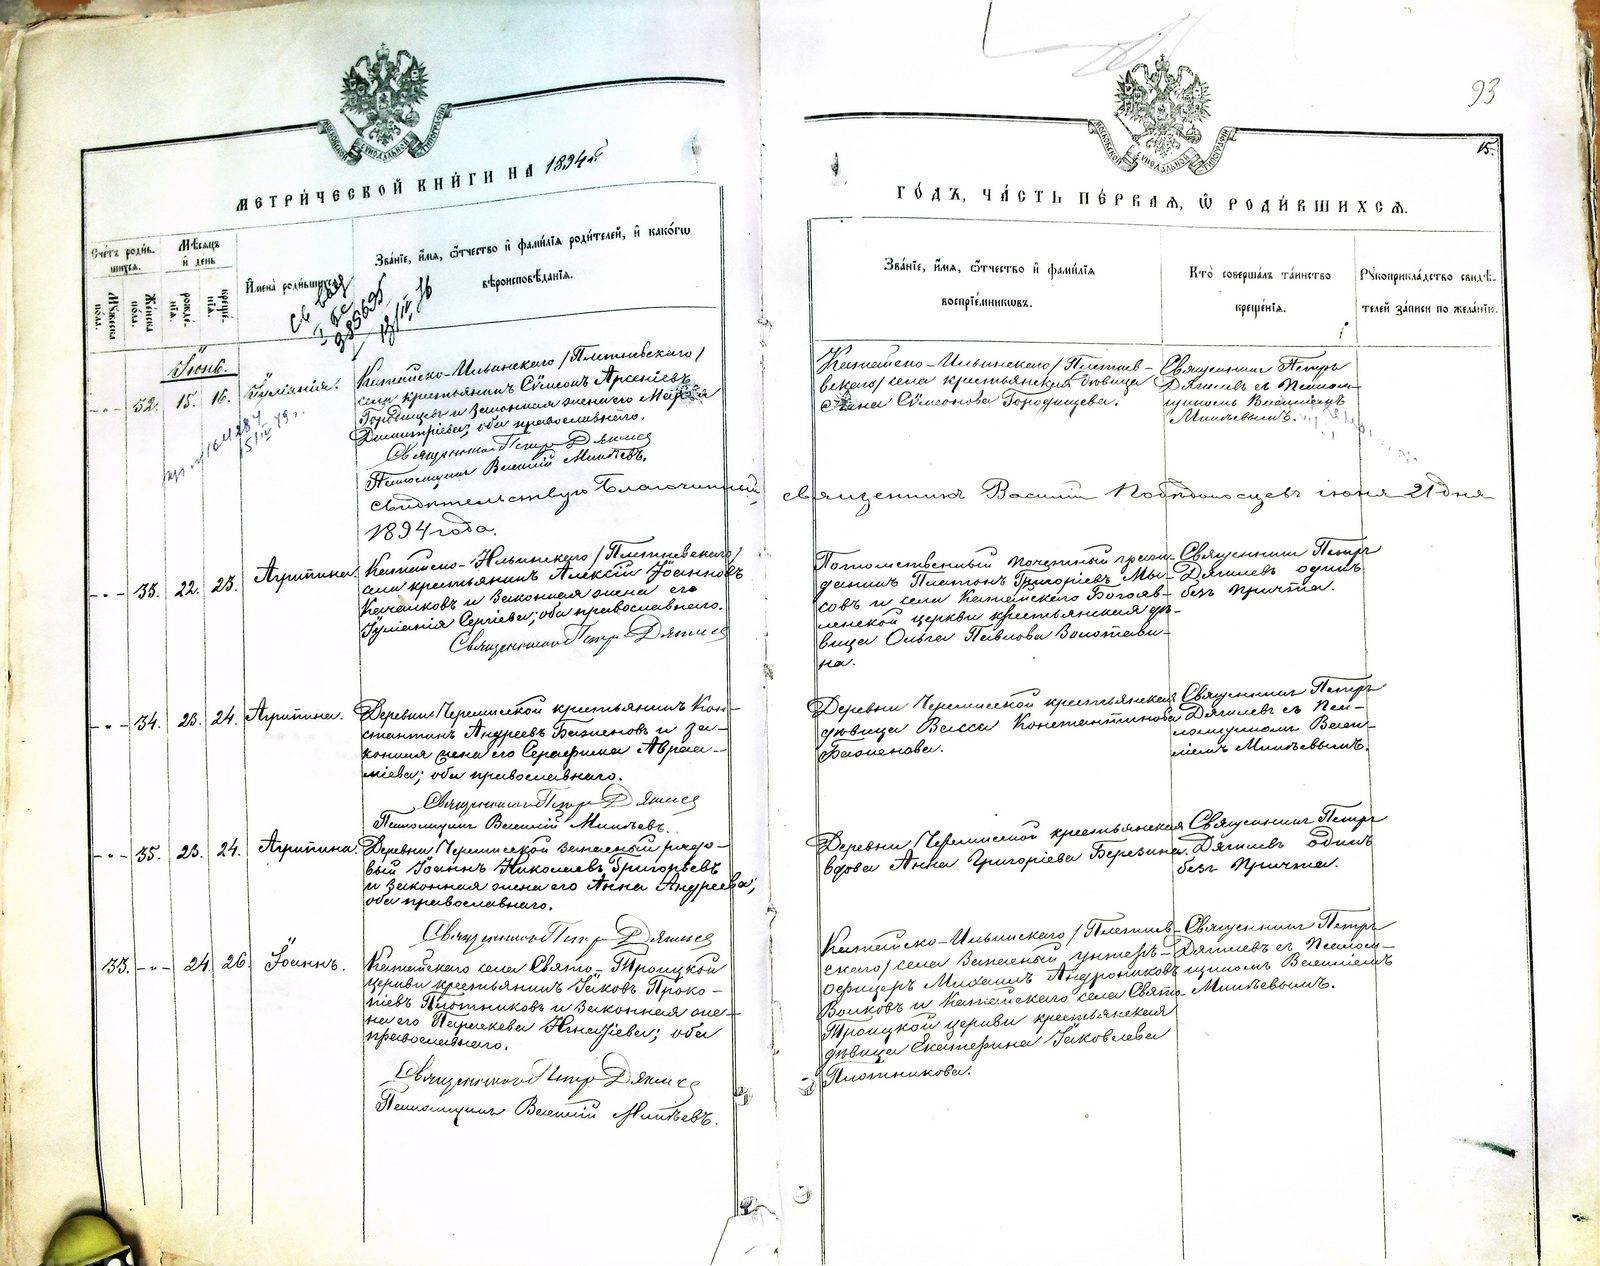 93
15.
МЕТРИ́ЧЕСКОЙ КНИ́ГИ НА 1894 г.
ГО́ДЪ, ЧА́СТЬ ПЕ́РВАЯ, Ѡ РОДИ́ВШИХСЯ.
Счетъ роди́вшихся.
Му́жеска по́ла.
Же́нска по́ла.
Мѣсяцъ и день
рожде́нїя.
креще́нїя.
Имена̀ роди́вшихся.
Зва́нїе, и́мя, ѻ́тчество и фами́лїя роди́телей, и како́гѡ
вѣроисповѣ́данїя.
Зва́нїе, и́мя, ѻ́тчество и фами́лїя
воспрїе́мникѡвъ.
Кто̀ соверша́лъ та́инство
креще́нїя.
Рукоприкла́дство свидѣ́-
телей за́писи по жела́нїю.
Іюнь.
32. 15. 16. Іуліанія.
Катайско-Ильинскаго /Плотниевскаго/
села крестьянинъ Сѵмеонъ Арсеніевъ
Городищевъ и законная жена его Марѳа
Димитріева; оба православнаго.
Священникъ Петръ Дягилев
Псаломщикъ Василій Минѣевъ.
Катайско-Ильинскаго /Плотнив-
скаго/ села крестьянская дѣвица
Анна Сѵмеонова Городищева.
Священникъ Петръ
Дягилевъ съ Псалом-
щикомъ Василіемъ
Минѣевымъ.
свидѣтельствую Благочинный
священникъ Василій Побѣдоносцевъ іюня 21 дня
1894 года.
33. 22. 23. Агрипина.
Катайско-Ильинскаго /Плотниевскаго/
села крестьянинъ Алексій Іоанновъ
Качалковъ и законная жена его
Іуліанія Сергіева; оба православнаго.
Священникъ Петръ Дягилев
Потомственный почетный граж-
данинъ Платонъ Григоріевъ Мы-
совъ и села Катайскаго Богояв-
ленской церкви крестьянская дѣ-
вица Ольга Павлова Золотави-
на.
Священникъ Петръ
Дягилевъ одинъ
безъ причта.
34. 23. 24. Агрипина.
Деревни Черемисской крестьянинъ Кон-
стантинъ Андреевъ Баженовъ и за-
конная жена его Серафима Авраа-
міева; оба православнаго.
Священникъ Петръ Дягилев
Псаломщикъ Василій Минѣевъ.
Деревни Черемисской крестьянская
дѣвица Васса Константинова
Баженова.
Священникъ Петръ
Дягилевъ съ Пса-
ломщикомъ Васи-
ліемъ Минѣевымъ.
35. 23. 24. Агрипина.
Деревни Черемисской запасный рядо-
вый Іоаннъ Николаевъ Григорьевъ
и законная жена его Анна Андреева;
оба православнаго.
Священникъ Петръ Дягилев
Деревни Черемисской крестьянская
вдова Анна Григоріева Березина.
Священникъ Петръ
Дягилевъ одинъ
безъ причта.
33. 24. 26. Іоаннъ.
Катайскаго села Свято-Троицкой
церкви крестьянинъ Іаковъ Проко-
піевъ Плотниковъ и законная же-
на его Параскева Игнатіева; оба
православнаго.
Священникъ Петръ Дягилев
Псаломщикъ Василій Минѣевъ.
Катайско-Ильинскаго /Плотнив-
скаго/ села запасный унтеръ-
офицеръ Михаилъ Андрониковъ
Волковъ и Катайскаго села Свято-
Троицкой церкви крестьянская
дѣвица Екатерина Іаковлева
Плотникова.
Священникъ Петръ
Дягилевъ съ Псалом-
щикомъ Василіемъ
Минѣевымъ.